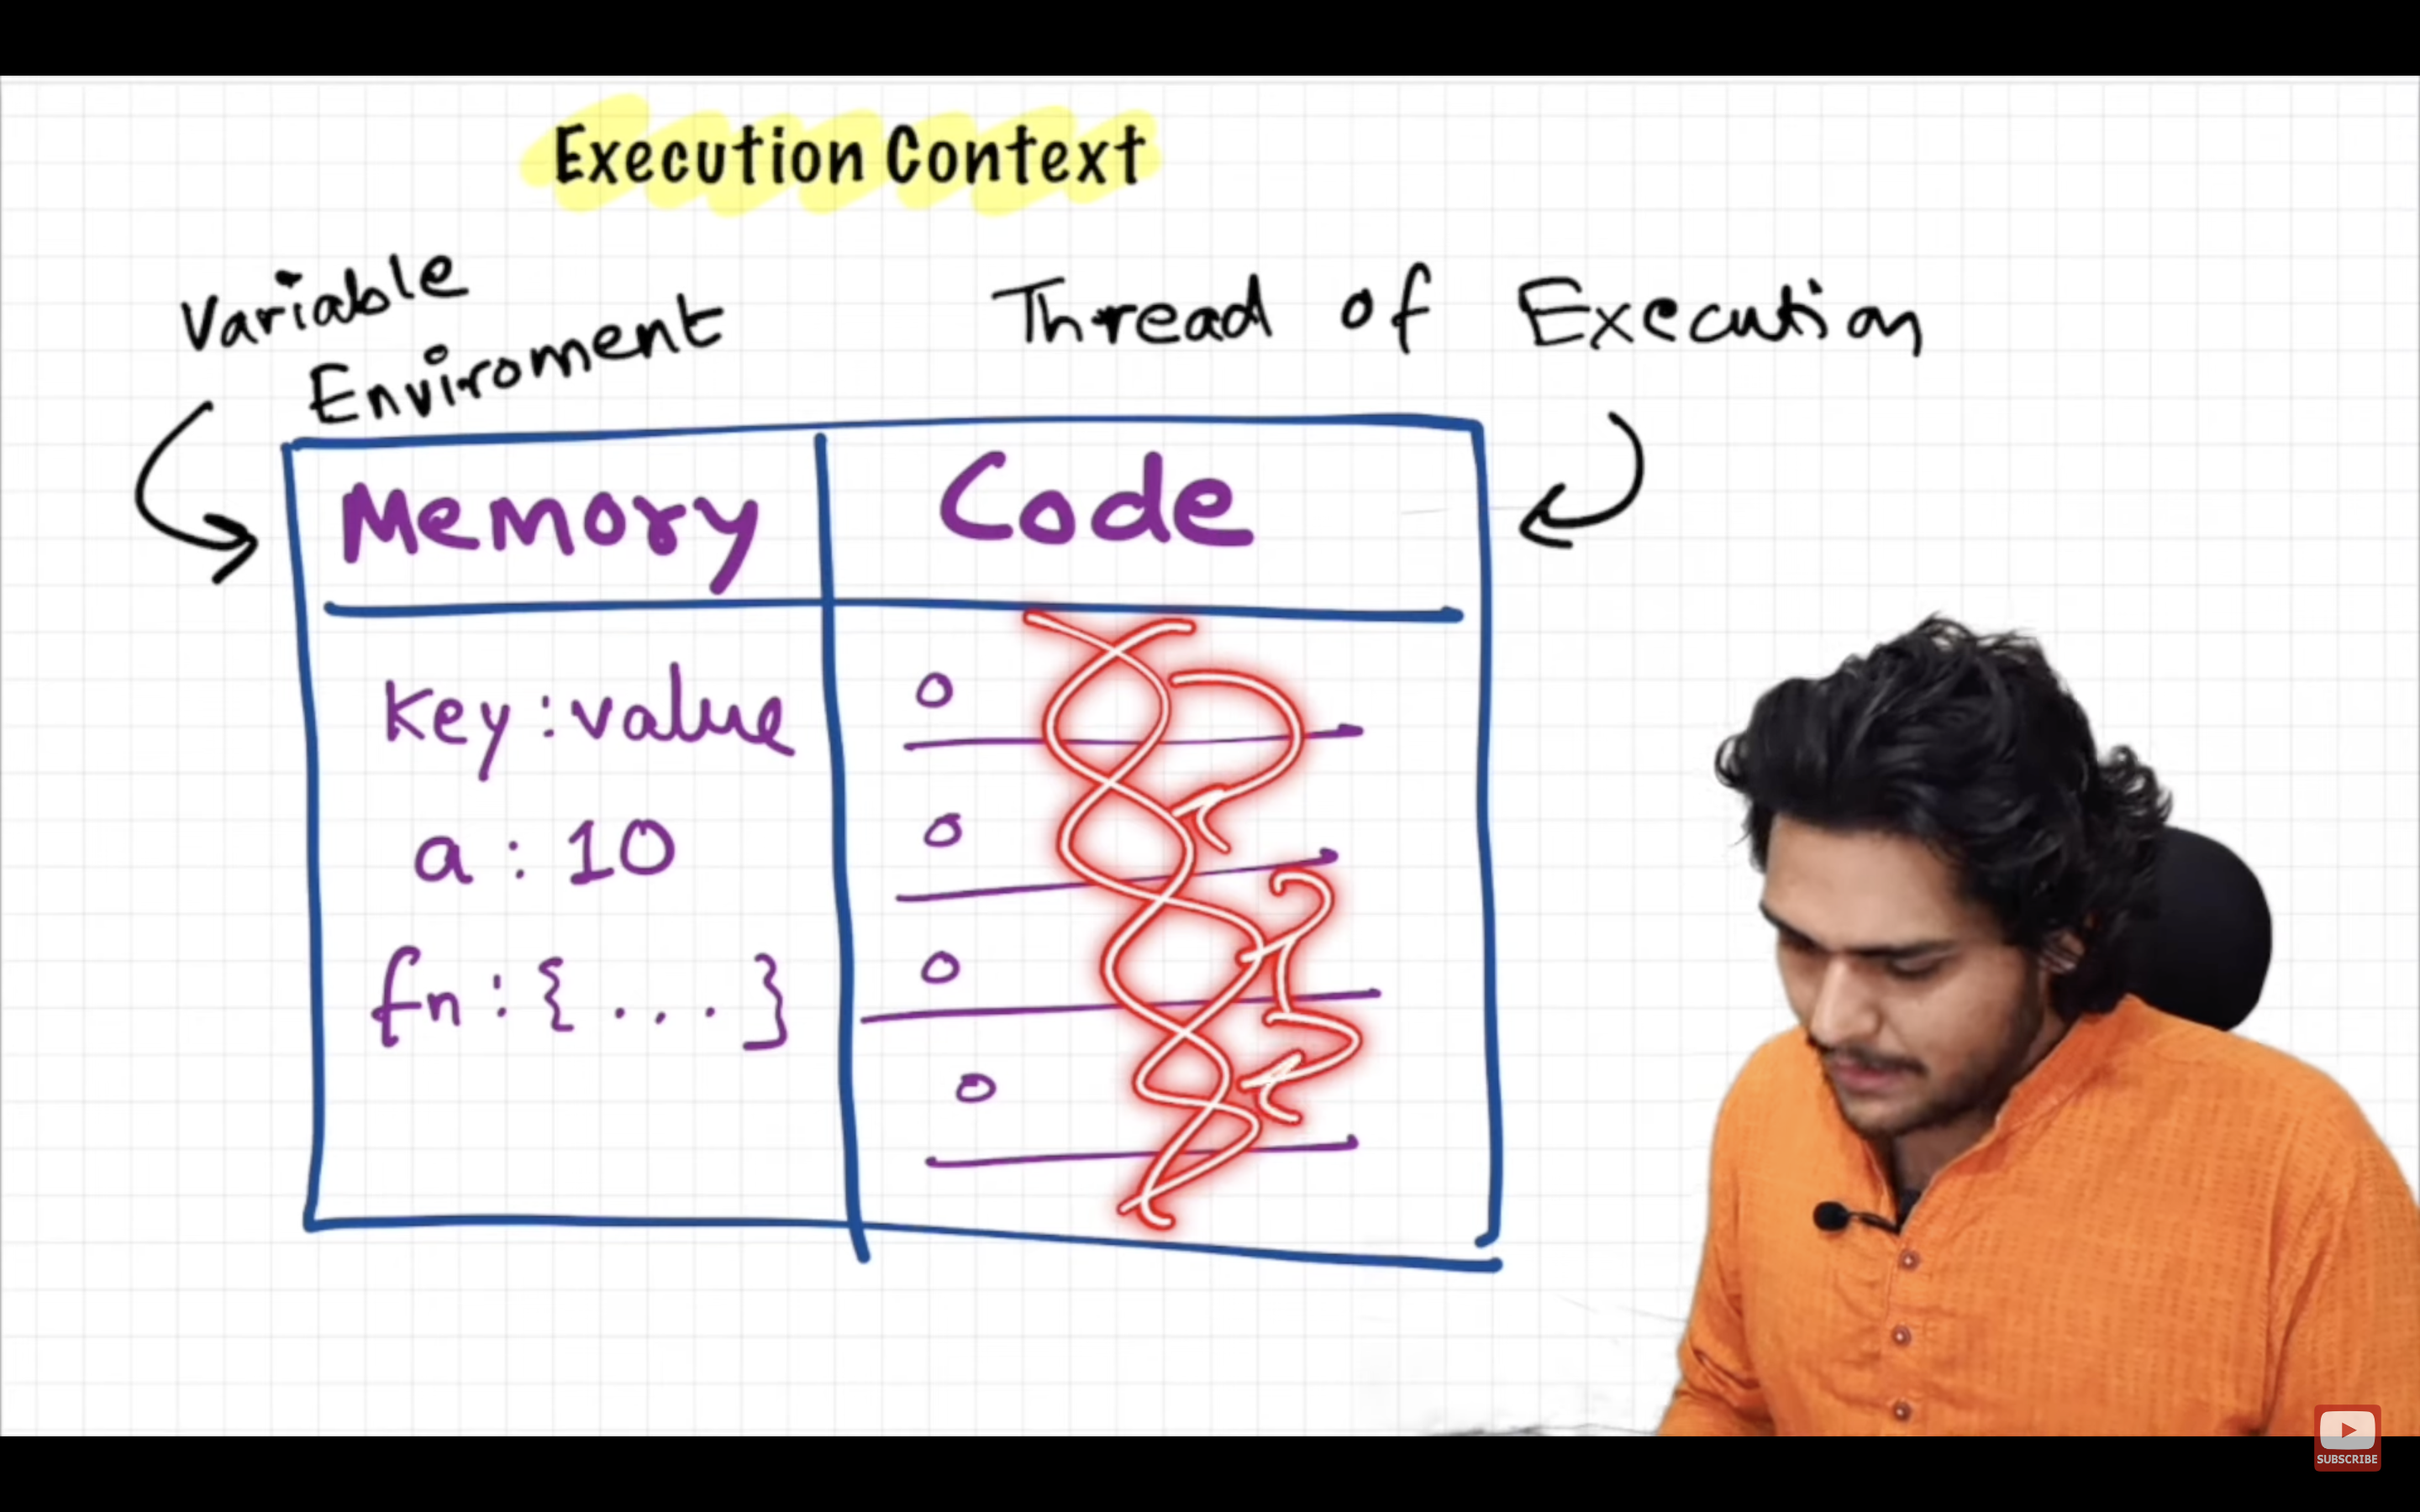 Execution Context
Variable
Enviroment
Thread of Execution
Memory
Code
key : value
a : 10
fn : { ... }
SUBSCRIBE